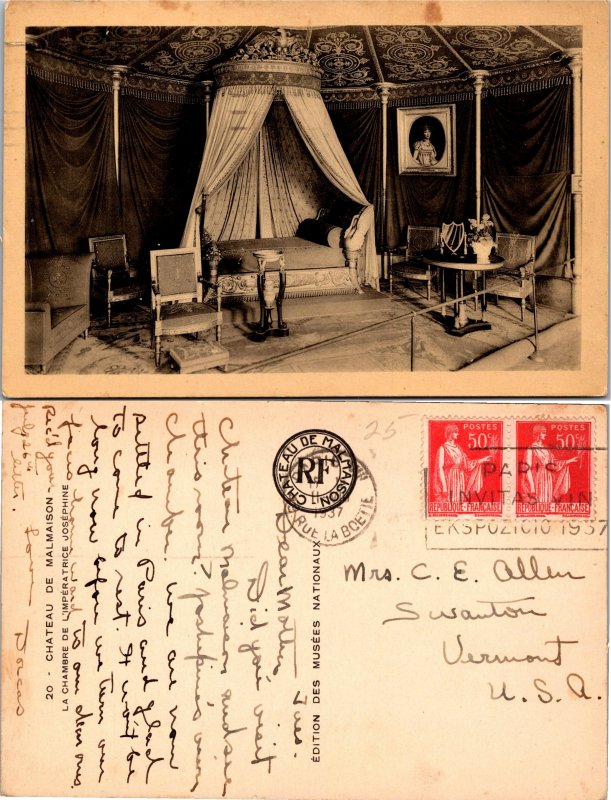 25-
CHATEAU DE MALMAISON
RF
1937
RUE LA BOETIE
POSTES
50c
REPUBLIQUE FRANÇAISE
POSTES
50c
REPUBLIQUE FRANÇAISE
PARIS
INVITAS VIN
EKSPOZICIO 1937
Mrs. C. E. Allen
Swanton
Vermont
U.S.A.
20 - CHATEAU DE MALMAISON
LA CHAMBRE DE L'IMPÉRATRICE JOSÉPHINE
ÉDITION DES MUSÉES NATIONAUX
Tues.
Dear Mother,
Did you visit
Chateau Malmaison and see
this room? Josephine's own
chamber. We are now
settled in Paris and glad
to come to rest. It won't be
long now before we turn our
faces homeward to our dear ones.
Love
Dorcas